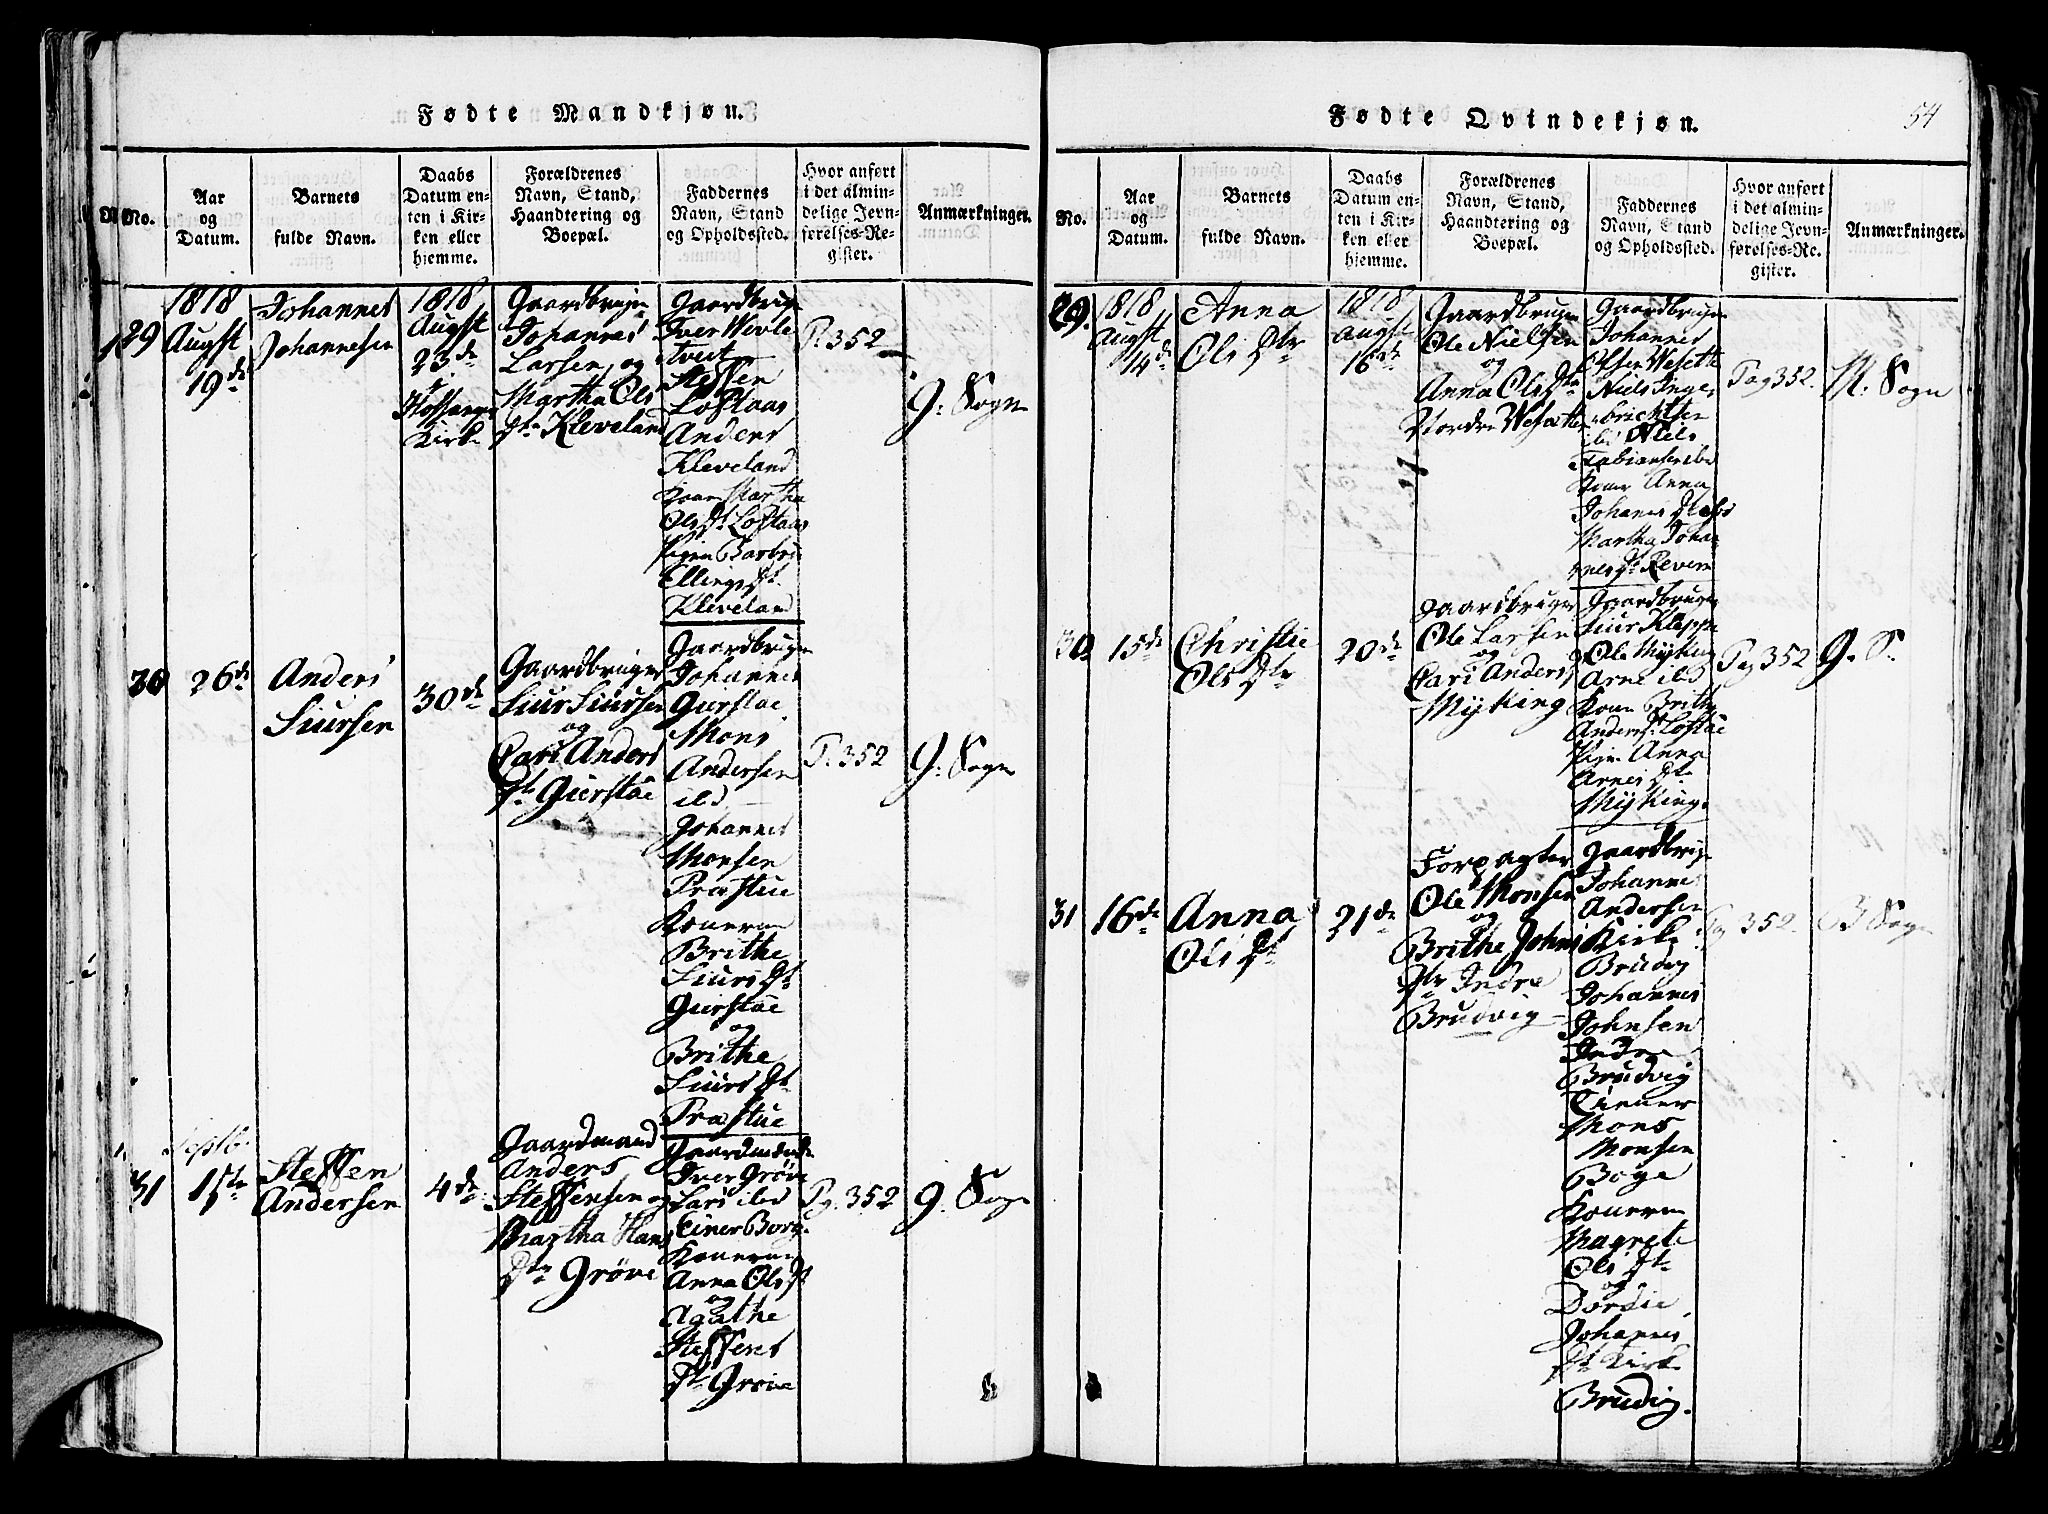 Fødte Mandkjøn.
No.
Aar
og
Datum.
Barnets
fulde Navn.
Daabs
Datum en-
ten i Kir-
ken eller
hjemme.
Forældrenes
Navn, Stand,
Haandtering og
Boepæl.
Faddernes
Navn, Stand
og Opholdssted.
Hvor anført
i det almin-
delige Jevn-
førelses-Re-
gister.
Anmærkninger.
29
1818
Augst
19de
Johannes
Johannesen
1818
Augst
23de
Kirke
Gaardbruger
Johannes
Larsen og
Martha Ols
Dtr Kleveland
Gaardbruger
Iver
tveit
Steffen
Loftaas
Anders
Kleveland
Kone Martha
Ols Dt Loftaas
Pigen Barbro
Ellings Dt
Kleveland
P. 352
9. Sogn
30
26de
Anders
Siursen
30de
Gaardbruger
Siur Siursen
og
Pari Anders
Dtr Gierstae
Gaardbruger
Johannes
Gierstae
Mons
Andersen
ibd
Johannes
Monsen
Præstue
Konerne
Brithe
Siurs Dt
Gierstae
og
Brithe
Siurs Dt
Præstue
P. 352
9. Sogn
31
Septbr
1ste
Steffen
Andersen
4de
Gaardmand
Anders
Steffensen og
Martha Hans
Dtr Grøve
Gaardmænd
Iver Grøve
Lars ibd
Einer Borg
Konerne
Anna Ols Dt
og
Agathe
Steffens
Dt Grøve
Pg. 352
9. Sogn
Fødte Qvindekjøn.
54
No.
Aar
og
Datum.
Barnets
fulde Navn.
Daabs
Datum en-
ten i Kir-
ken eller
hjemme.
Forældrenes
Navn, Stand,
Haandtering og
Boepæl.
Faddernes
Navn, Stand
og Opholdssted.
Hvor anført
i det almin-
delige Jevn-
førelses-Re-
gister.
Anmærkninger.
29.
1818
Augst
14de
Anna
Ols Dtr
1818
Augst
16de
Gaardbruger
Ole Nielsen
og
Anna Ols Dtr
Nordre Wesethe
Gaardbruger
Johannes
Olsen Weseth
Niels Inge
brichtsen
ibd Niels
Fabiansen ibd
Kone Anna
Johannes Dt ibd
Martha Johan
nes Dt Revem
Pag 352.
M. Sogn
30
15de
Christie
Ols Dtr
20de
Gaardbruger
Ole Larsen
og
Pari Anders D
Myking
Gaardbruger
Siur Kleppe
Ole Myking
Arne ibd
Kone Brithe
Anders Dt Loftaas
Pigen Anna
Arnes Dt
Myking.
Pag 352
9. S.
31
16de
Anna
Ols Dt
21de
Forpagter
Ole Monsen
og
Brithe Johns
Dtr Indre
Brudvig
Gaardbruger
Johannes
Andersen
Kirke
Brudvig
Johannes
Johnsen
Indre
Brudvig
Tiener
Mons
Monsen
Boge
Konerne
Magrete
Ols Dt
og
Dordie
Johannes
Dt Kirke
Brudvig.
Pag 352.
B Sogn